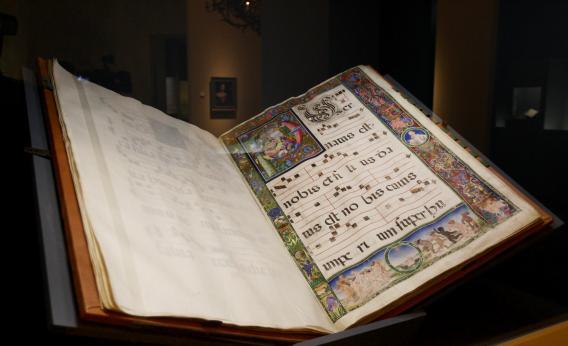 uer
natus est
nobis et fi li us da
tus est no bis cuius
impe ri um super hu